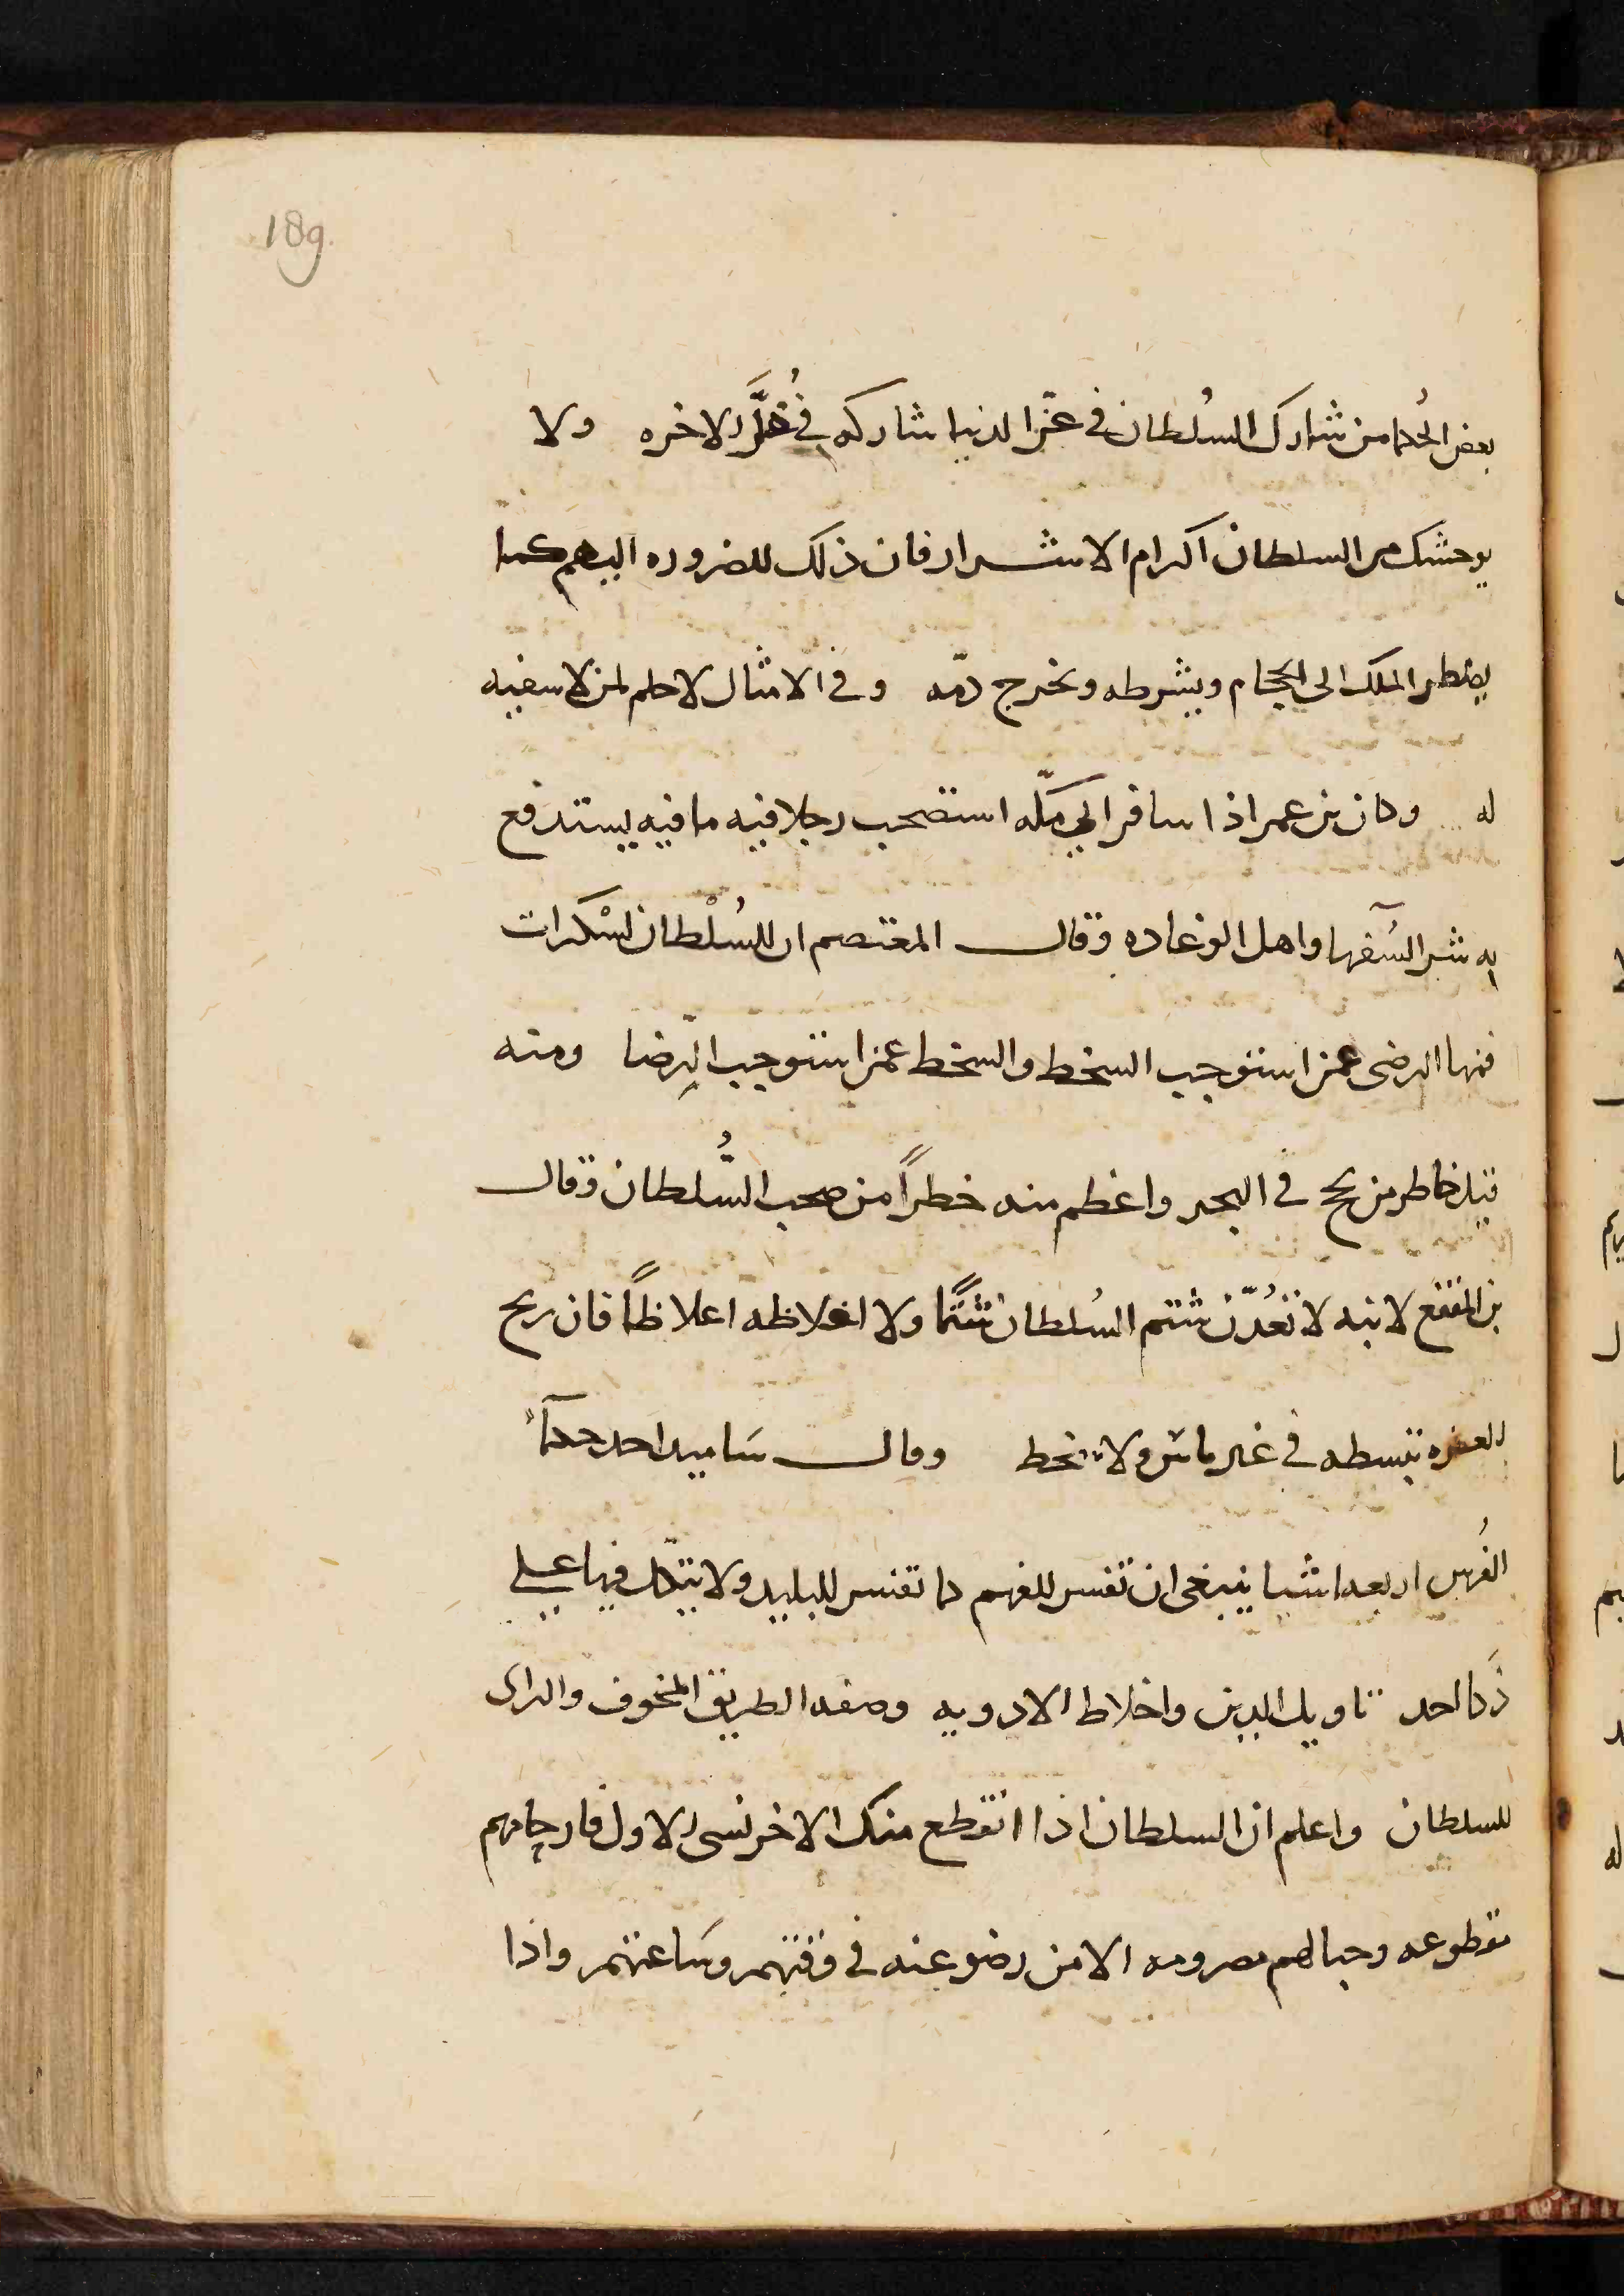 189
بعض الحُكما من شارك السُلطان في عزّ الدنيا شاركه في ذُلّ الاخره ولا
يوحشك من السلطان اكرام الاشرار فان ذلك للضروره اليهم كما
يضطر الملك الى الحجام ويشرطه ويخرج دمّه وفي الامثال لا حلم لمن لا سفيه
له وكان بن عمر اذا سافر الي مكّه استصحب رجلا فيه ما فيه يستدفع
به شر السُفها واهل الوغاده وقال المعتصم ان للسُلْطان لسْكرات
فمنها الرضى عمن استوجب السخط والسخط عمن استوجب الرِّضا ومنه
قيل خاطر من لج في البحر واعظم منه خطراً من صحب السُّلطان وقال
بن المقفع لابنه لا تعُدّن شتم السُلطان شتمًا ولا اغلاظه اغلاظاً فان ريح
العزه تبسطه في غير باس ولا سخط وقال ساميد احد حكمآء
الفُرس اربعه اشيا ينبغى ان تفسر للفهم كما تفسر للبليد ولا يتكل فيها على
ذَكا احد تاويل الدين واخلاط الادويه وصفه الطريق المخوف والراى
للسلطان واعلم ان السلطان اذا انقطع منك الاخر نسى الاول فارحامهم
مقطوعه وحبالهم مصرومه الا من رضو عنه في وقتهم وسَاعتهم واذا